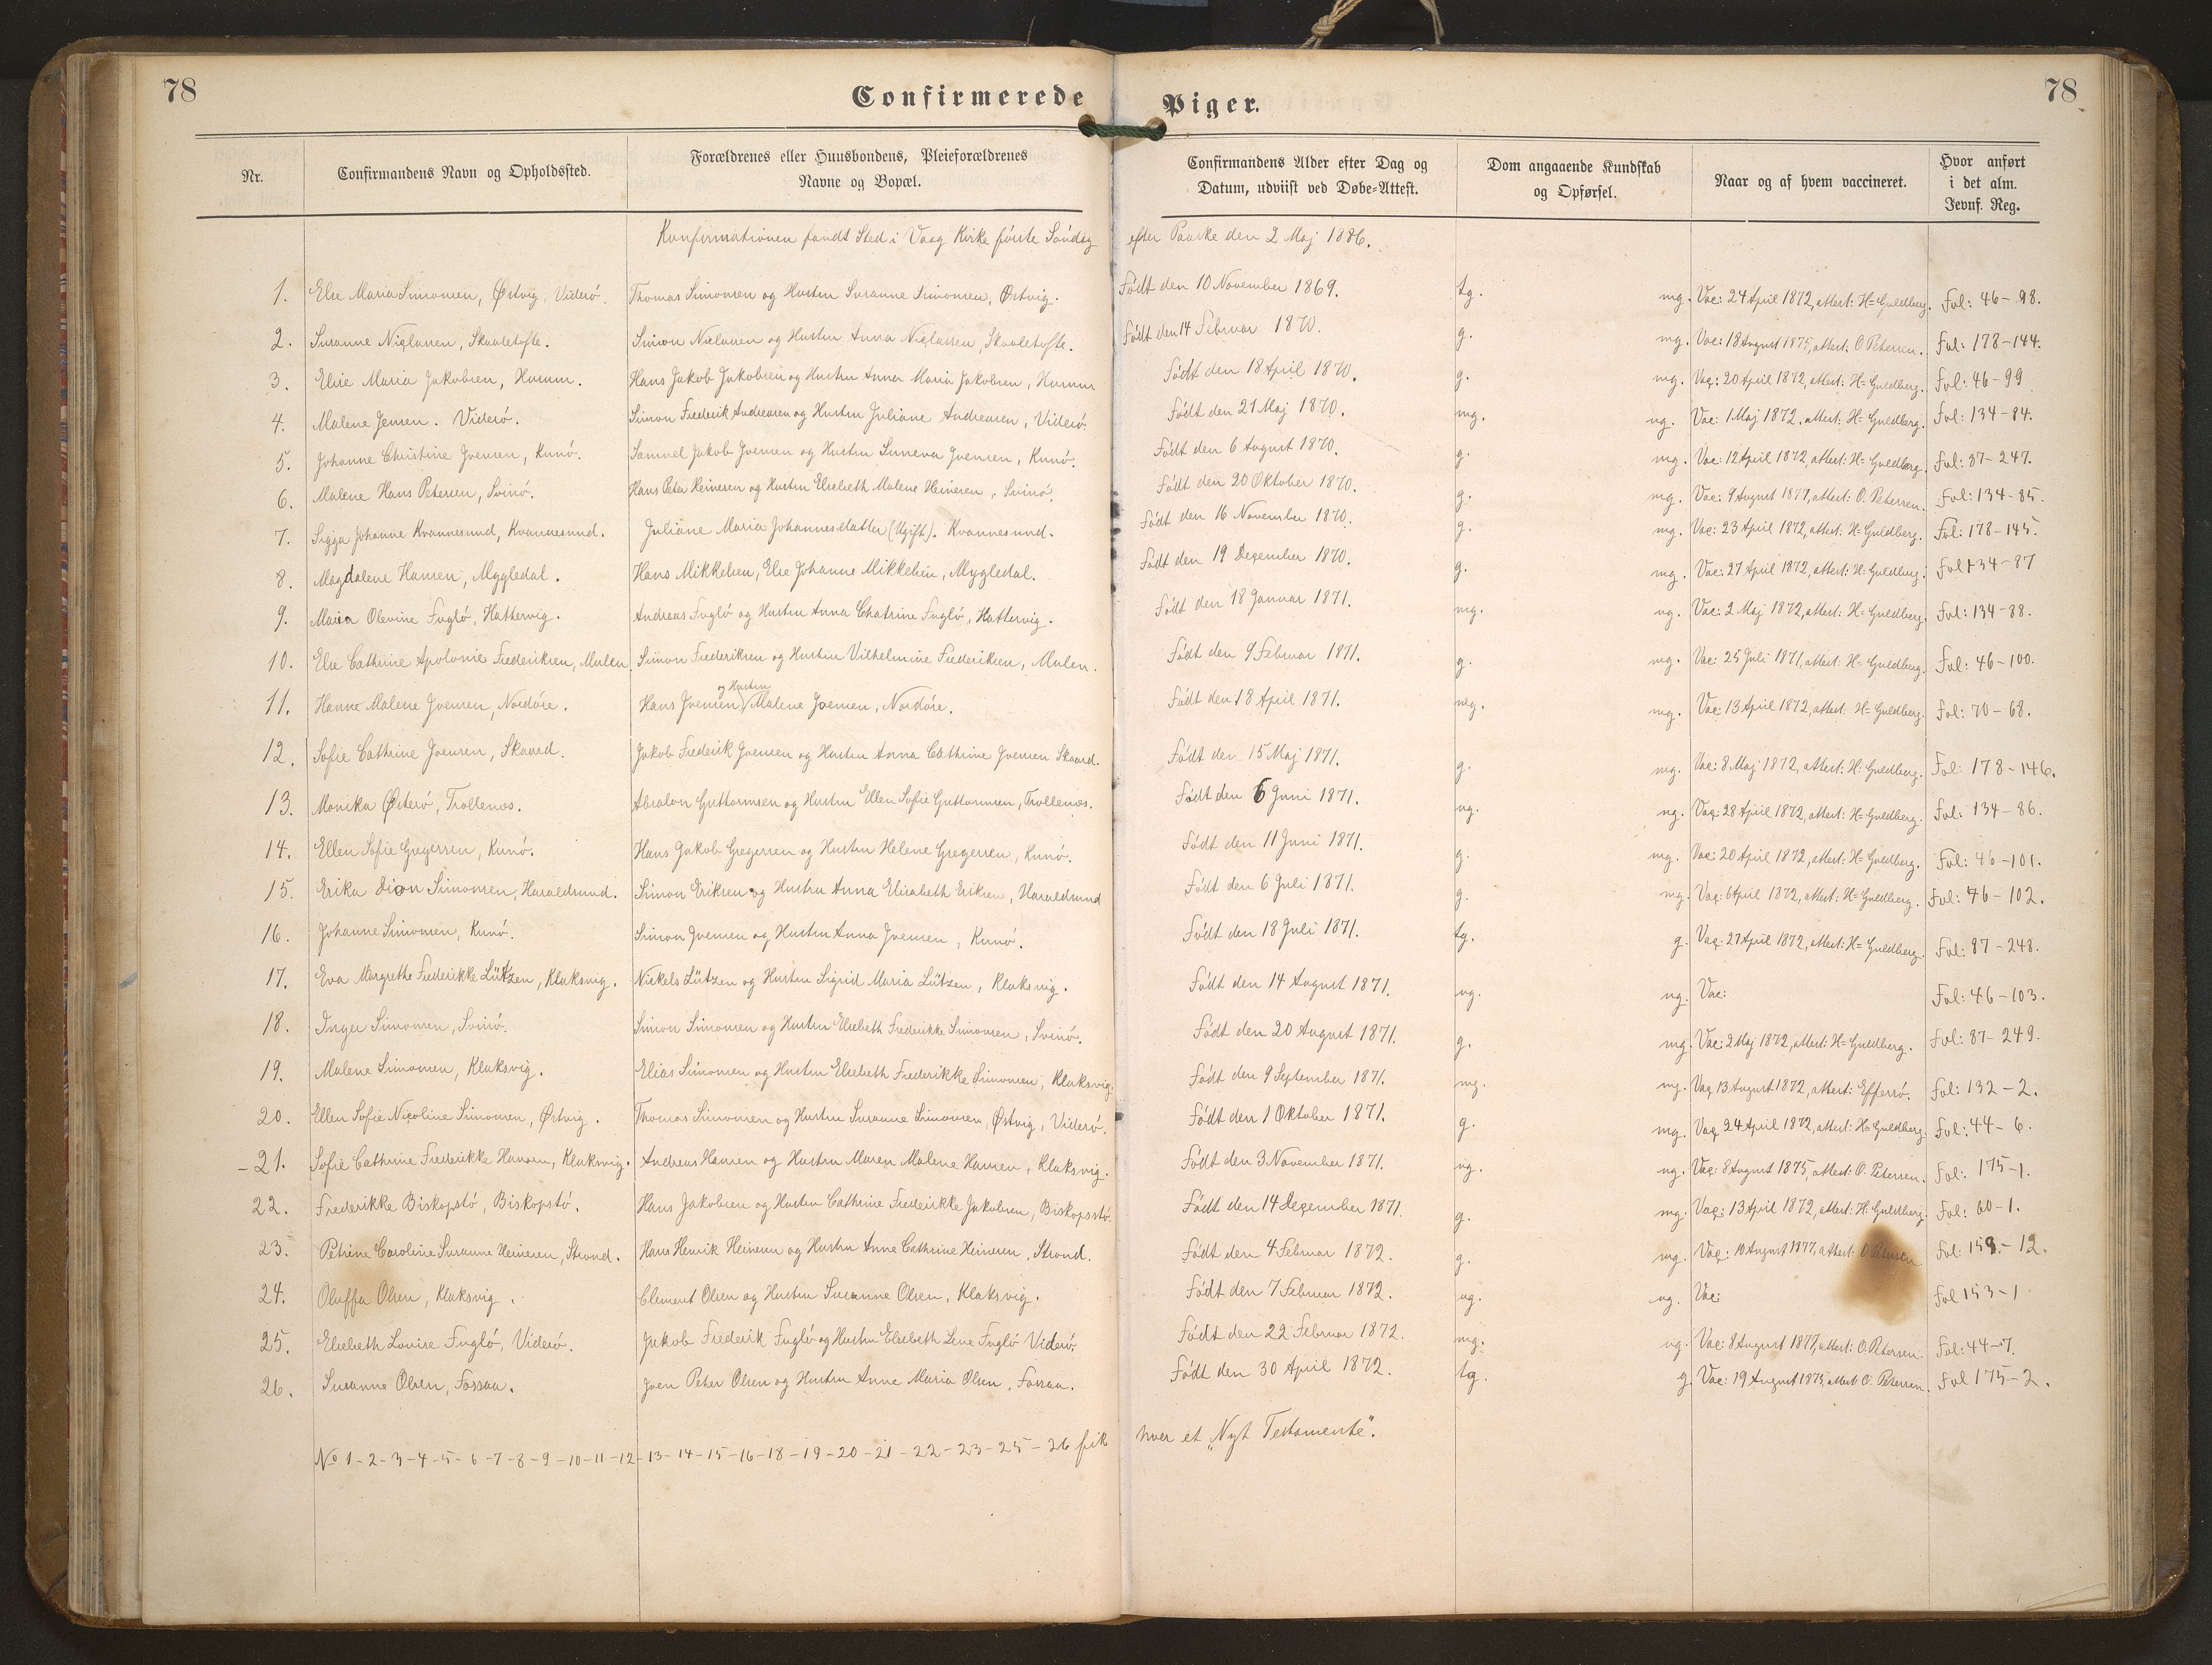 78
Confirmerede Piger.
78
Nr.
Confirmandens Navn og Opholdssted.
Forældrenes eller Huusbondens, Pleieforældrenes Navne og Bopæl.
Confirmandens Alder efter Dag og Datum, udviist ved Døbe-Attest.
Dom angaaende Kundskab og Opførsel.
Naar og af hvem vaccineret.
Hvor anført i det alm. Jevnf. Reg.
Konfirmationen fandt Sted i Vaag Kirke første Søndag efter Paaske den 2 Maj 1886.
1. Else Maria Simonsen, Østvig, Viderö. Thomas Simonsen og Hustru Susanne Simonsen, Østvig. Födt den 10 November 1869. tg. mg. Vac: 24 April 1872, attest: H= Guldberg. Fol: 46-98.
2. Susanne Niclasen, Skaaletofte. Simon Niclasen og Hustru Anna Niclasen, Skaaletofte. Födt den 14 Februar 1870. g. mg. Vac: 18 August 1875, attest: O Petersen. Fol: 178-144.
3. Elsie Maria Jakobsen, Husum. Hans Jakob Jakobsen og Hustru Anna Maria Jakobsen, Husum Födt den 18 April 1870. g. mg. Vac: 20 April 1872, attest: H= Guldberg. Fol: 46-99
4. Malene Jensen. Viderö. Simon Frederik Andreasen og Hustru Juliane Andreasen, Viderö. Födt den 21 Maj 1870. mg. ug. Vac: 1 Maj 1872, attest: H= Guldberg. Fol: 134-84.
5. Johanne Christine Joensen, Kunö. Samuel Jakob Joensen og Hustru Suneva Joensen, Kunö. Födt den 6 August 1870. g. mg. Vac: 12 April 1872, attest: H= Guldberg. Fol: 87-247.
6. Malene Hans Petersen, Svinö. Hans Peter Heinesen og Hustru Elsebeth Malene Heinesen, Svinö. Födt den 20 Oktober 1870. g. mg. Vac: 9 August 1877, attest: O. Petersen. Fol: 134-85.
7. Sigga Johanne Kvannesund, Kvannesund. Juliane Maria Johannesdatter (Ugift). Kvannesund. Födt den 16 November 1870. g. mg. Vac: 23 April 1872, attest: H= Guldberg. Fol: 178-145.
8. Magdalene Hansen, Mygledal. Hans Mikkelsen, Else Johanne Mikkelsen, Mygledal. Födt den 19 December 1870. g. mg. Vac: 27 April 1872, attest: H: Guldberg. Fol 134-87
9. Maria Olevine Fuglö, Hattervig. Andreas Fuglö og Hustru Anna Chatrine Fuglö, Hattervig. Födt den 18 Januar 1871. mg. ug. Vac: 2 Maj 1872, attest: H= Guldberg. Fol: 134-88.
10. Else Cathrine Apolonie Frederiksen, Mulen Simon Frederiksen og Hustru Vilhelmine Frederiksen, Mulen. Födt den 9 Februar 1871. g. mg. Vac: 25 Juli 1871, attest: H= Guldberg. Fol: 46-100.
11. Hanne Malene Joensen, Nordöre. Hans Joensen og Hustru Malene Joensen, Nordöre. Födt den 18 April 1871. mg. mg. Vac: 13 April 1872, attest: H= Guldberg. Fol: 70-68.
12. Sofie Cathrine Joensen, Skaard. Jakob Frederik Joensen og Hustru Anna Cathrine Joensen Skaard. Födt den 15 Maj 1871. g. mg. Vac: 8 Maj 1872, attest: H: Guldberg. Fol: 178-146.
13. Monika Österö, Trollenæs. Absalon Guttormsen og Hustru Ellen Sofie Guttormsen, Trollenæs. Födt den 6 Juni 1871. ug. ug. Vac: 28 April 1872, attest: H= Guldberg. Fol: 134-86.
14. Ellen Sofie Gregersen, Kunö. Hans Jakob Gregersen og Hustru Helene Gregersen, Kunö. Födt den 11 Juni 1871. g. mg. Vac: 20 April 1872, attest: H= Guldberg. Fol: 46-101.
15. Erika Simonsen, Haraldsund. Simon Eriksen og Hustru Anna Elisabeth Eriksen, Haraldsund Födt den 6 Juli 1871. g. mg. Vac: 6 April 1872, attest: H= Guldberg. Fol: 46-102.
16. Johanne Simonsen, Kunö. Simon Joensen og Hustru Anna Joensen, Kunö. Födt den 18 Juli 1871. tg. g. Vac: 27 April 1872, attest: H= Guldberg. Fol: 87-248.
17. Eva Margrethe Frederikke Lützen, Klaksvig. Nickels Lützen og Hustru Sigrid Maria Lützen, Klaksvig. Födt den 14 August 1871. ug. ug. Vac: Fol: 46-103.
18. Inger Simonsen, Svinö. Simon Simonsen og Hustru Elsebeth Frederikke Simonsen, Svinö. Födt den 20 August 1871. g. mg. Vac: 2 Maj 1872, attest: H= Guldberg. Fol: 87-249.
19. Malene Simonsen, Klaksvig. Elias Simonsen og Hustru Elsebeth Frederikke Simonsen, Klaksvig. Födt den 9 September 1871. mg. mg. Vac 13 August 1872, attest: Effersö. Fol: 132-2.
20. Ellen Sofie Nicoline Simonsen, Østvig. Thomas Simonsen og Hustru Susanne Simonsen, Østvig, Viderö. Födt den 1 Oktober 1871. g. mg. Vac 24 April 1872, attest: H= Guldberg. Fol: 44-6.
-21. Sofie Cathrine Frederikke Hansen, Klaksvig. Andreas Hansen og Hustru Maren Malene Hansen, Klaksvig. Födt den 3 November 1871. ug. ug. Vac: 8 August 1875, attest: O. Petersen. Fol: 175-1.
22. Frederikke Biskopstö, Biskopstö. Hans Jakobsen og Hustru Cathrine Frederikke Jakobsen, Biskopsstö. Födt den 14 December 1871. g. mg. Vac: 13 April 1872, attest: H: Guldberg. Fol: 60-1.
23. Petrine Caroline Susanne Heinesen, Strond. Hans Henrik Heinesen og Hustru Anne Cathrine Heinesen, Strond. Födt den 4 Februar 1872. g. mg. Vac: 10 August 1877, attest: O. Petersen. Fol: 159-12.
24. Oluffa Olsen, Klaksvig. Clement Olsen og Hustru Susanne Olsen, Klaksvig. Födt den 7 Februar 1872. ug. ug. Vac: Fol 153-1
25. Elsebeth Lovise Fuglö, Viderö. Jakob Frederik Fuglö og Hustru Elsebeth Lene Fuglö Viderö. Födt den 22 Februar 1872. mg. ug. Vac: 8 August 1877, attest: O. Petersen. Fol: 44-7.
26. Susanne Olsen, Fossaa. Joen Peter Olsen og Hustru Anne Maria Olsen, Fossaa. Födt den 30 April 1872. tg. g. Vac: 19 August 1875, attest O. Petersen. Fol 175-2.
No 1-2-3-4-5-6-7-8-9-10-11-12-13-14-15-16-18-19-20-21-22-23-25-26 fik hver et „Nyt Testamente".